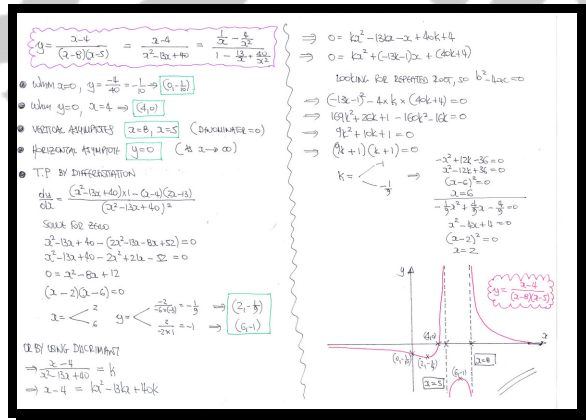 y = (x-4)/((x-8)(x-5)) = (x-4)/(x²-13x+40) = (1/x - 4/x²)/(1 - 13/x + 40/x²)
• WHEN x=0, y = -4/40 = -1/10 ⇒ (0,-1/10)
• WHEN y=0, x=4 ⇒ (4,0)
• VERTICAL ASYMPTOTES x=8, x=5 (DENOMINATOR=0)
• HORIZONTAL ASYMPTOTE y=0 (AS x→∞)
• T.P BY DIFFERENTIATION
dy/dx = ((x²-13x+40)×1-(x-4)(2x-13))/(x²-13x+40)²
SOLVE FOR ZERO
x²-13x+40-(2x²-13x-8x+52)=0
x²-13x+40-2x²+21x-52=0
0=x²-8x+12
(x-2)(x-6)=0
x= < 2 6 y= < -2/(-6×(-3)) = -1/9 ⇒ (2,-1/9)
2/(-2×1) = -1 ⇒ (6,-1)
OR BY USING DISCRIMINANT
⇒ (x-4)/(x²-13x+40) = k
⇒ x-4 = kx²-13kx+40k
⇒ 0 = kx²-13kx-x+40k+4
⇒ 0 = kx²+(-13k-1)x+(40k+4)
LOOKING FOR REPEATED ROOT, SO b²-4ac=0
⇒ (-13k-1)²-4×k×(40k+4)=0
⇒ 169k²+26k+1-160k²-16k=0
⇒ 9k²+10k+1=0
⇒ (9k+1)(k+1)=0
k= < -1 -1/9 ⇒
-x²+12x-36=0
x²-12x+36=0
(x-6)²=0
x=6
-1/9x²+4/9x-4/9=0
x²-4x+4=0
(x-2)²=0
x=2
y
y = (x-4)/((x-8)(x-5))
(4,0)
x
(0,-1/10)
(2,-1/9)
(6,-1)
x=8
x=5